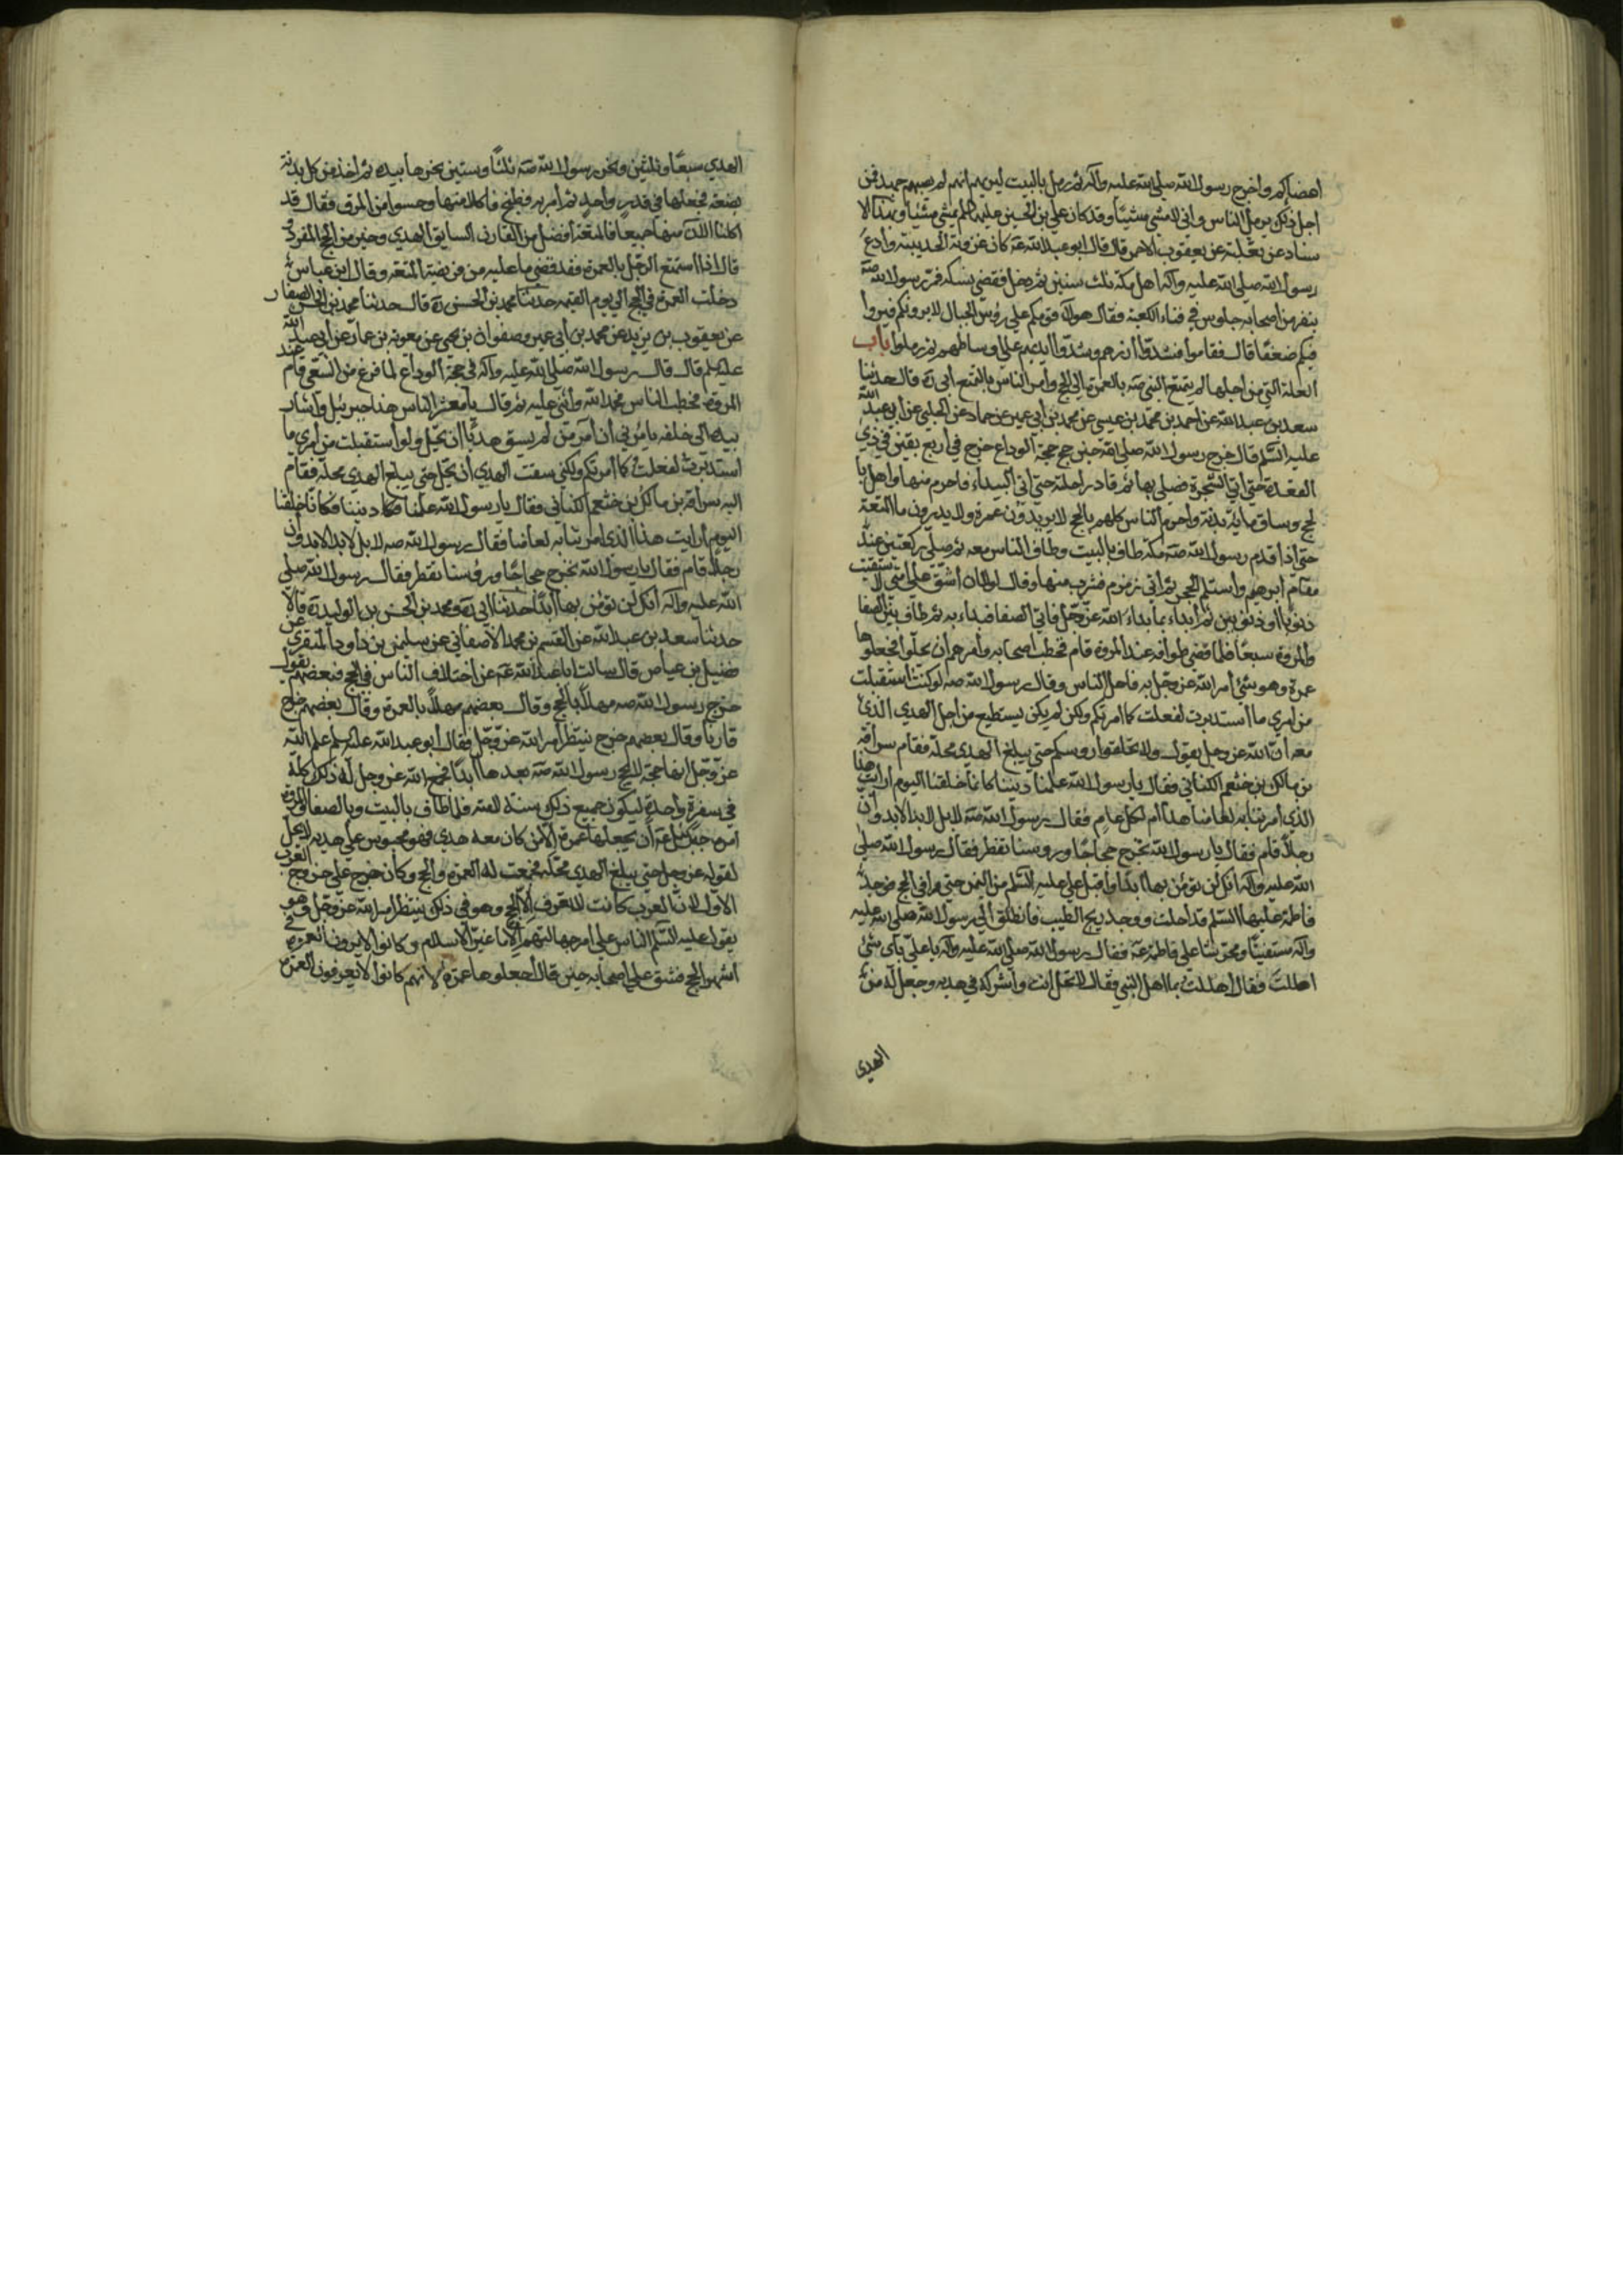 اعضادكم واخرج رسول الله صلى الله عليه وآله ثم رمل بالبيت ليريهم انهم لم يصبهم جهد فمن
اجل ذلك يرمل الناس واني لامشي مشيا وقد كان علي بن الحسين عليه السلم يمشي مشيا وبهذا الا
سناد عن ثعلبة عن يعقوب الاحمر قال قال ابو عبد الله عه كان غزوة الحديبية وادع
رسول الله صلى الله عليه وآله اهل مكة ثلث سنين ثم دخل فقضى نسكه فمر رسول الله صه
بنفر من اصحابه جلوس في فناء الكعبة فقال هولاء قومكم على رؤس الجبال لا يرونكم فيروا
فيكم ضعفا قال فقاموا فشدوا ازرهم وشدوا ايديهم على اوساطهم ثم رملوا باب
العلة التي من اجلها لم يتمتع النبي صه بالعمرة الى الحج وأمر الناس بالتمتع ابي ره قال حدثنا
سعد بن عبد الله عن احمد بن محمد بن عيسى عن محمد بن ابي عمير عن حماد عن الحلبي عن ابي عبد الله
عليه السلم قال خرج رسول الله صلى الله حين حج حجة الوداع خرج في اربع بقين من ذي
القعدة حتى اتى الشجرة فصلى بها ثم قاد راحلته حتى اتى البيداء فاحرم منها واهل با
لحج وساق مائة بدنة واحرم الناس كلهم بالحج لا يريدون عمرة ولا يدرون ما المتعة
حتى اذا قدم رسول الله صه مكة طاف بالبيت وطاف الناس معه ثم صلى ركعتين عند
مقام ابرهيم واستلم الحجر ثم اتى زمزم فشرب منها وقال لولا ان اشق على امتي لا ستقيت
ذنوبا او ذنوبين ثم قال ابداء بما بداء الله عز وجل فاتى الصفا فبداء به ثم طاف بين الصفا
والمروة سبعا فلما قضى طوافه عند المروة قام فخطب اصحابه وأمرهم ان يحلوا فيجعلوها
عمرة وهو شئ أمر الله عز وجل به فاحل الناس وقال رسول الله صه لو كنت استقبلت
من امري ما استدبرت لفعلت كما امرتكم ولكن لم يكن يستطيع من اجل الهدي الذي
معه ان الله عز وجل يقول ولا تحلقوا روسكم حتى يبلغ الهدي محله فقام سراقة
بن مالك بن خثعم الكناني فقال يا رسول الله علمنا ديننا كانما خلقنا اليوم أرايت هذا
الذي أمرتنا به لعامنا هذا أم لكل عام فقال رسول الله صه لا بل لابد الابد وان
رجلا قام فقال يا رسول الله نخرج حجاجا وروسنا تقطر فقال رسول الله صلى
الله عليه وآله انك لن تؤمن بها ابدا وأقبل علي عليه السلم من اليمن حتى وافى الحج فوجد
فاطمة عليها السلم قد احلت ووجد ريح الطيب فانطلق الى رسول الله صلى الله عليه
وآله مستفتيا ومحرشا على فاطمة عه فقال رسول الله صلى الله عليه وآله يا علي باي شئ
اهللت فقال اهللت بما اهل النبي فقال لا تحل انت واشركه في هديه وجعل له من
الهدى
الهدي سبعا وثلثين ونحر رسول الله صه ثلثا وستين نحرها بيده ثم أخذ من كل بدنة
بضعة فجعلها في قدر واحد ثم أمر به فطبخ فاكلا منها وحسوا من المرق فقال قد
اكلنا الان منها جميعا فالمتعة أفضل من القارن السايق الهدي وخير من الحج المفرد و
قال اذا استمتع الرجل بالعمرة فقد قضى ما عليه من فريضة المتعة وقال ابن عباس
دخلت العمرة في الحج الى يوم القيمه حدثنا محمد بن الحسن ره قال حدثنا محمد بن الحسن الصفار
عن يعقوب بن يزيد عن محمد بن أبي عمير وصفوان بن يحيى عن معوية بن عمار عن ابي عبد الله
عليه السلم قال قال رسول الله صلى الله عليه وآله في حجة الوداع لما فرغ من السعي قام عند
المروة فخطب الناس فحمد الله وأثنى عليه ثم قال يا معشر الناس هذا جبرئيل وأشار
بيده الى خلفه يأمرني أن آمر من لم يسق هديا ان يحل ولو استقبلت من أمري ما
استدبرت لفعلت كما أمرتكم ولكني سقت الهدي وليس لسايق الهدي أن يحل حتى يبلغ الهدي محله فقام
اليه سراقة بن مالك بن خثعم الكناني فقال يا رسول الله علمنا ديننا فكانا خلقنا
اليوم أرايت هذا الذي امرتنا به لعامنا فقال رسول الله صه لا بل لابد الابد وان
رجلا قام فقال يا رسول الله نخرج حجاجا وروسنا تقطر فقال رسول الله صلى
الله عليه وآله انك لن تؤمن بها أبدا حدثنا ابي ره ومحمد بن الحسن بن الوليد ره قالا
حدثنا سعد بن عبد الله عن القسم بن محمد الاصفهاني عن سليمن بن داود المنقري عن
فضيل بن عياض قال سالت ابا عبد الله عه عن اختلاف الناس في الحج فبعضهم يقول
خرج رسول الله صه مهلا بالحج وقال بعضهم مهلا بالعمرة وقال بعضهم خرج
قارنا وقال بعضهم خرج ينتظر أمر الله عز وجل فقال أبو عبد الله عليه السلم علم الله
عز وجل انها حجة لا يحج رسول الله صه بعدها أبدا فجمع الله عز وجل له ذلك كله
في سفرة واحدة ليكون جميع ذلك سنة لامته فلما طاف بالبيت وبالصفا والمروة
امره جبرئيل عه أن يجعلها عمرة الا من كان معه هدي فهو محبوس على هديه لا يحل
لقوله عز وجل حتى يبلغ الهدي محله فجمعت له العمرة والحج وكان خرج على خروج العرب
الاول لان العرب كانت لا تعرف الا الحج وهو في ذلك ينتظر أمر الله عز وجل وهو
يقول عليه السلم الناس على امر جاهليتهم الا ما غيره الاسلام وكانوا لا يرون العمرة في
اشهر الحج فشق على اصحابه حين قال اجعلوها عمرة لانهم كانوا لا يعرفون العمرة